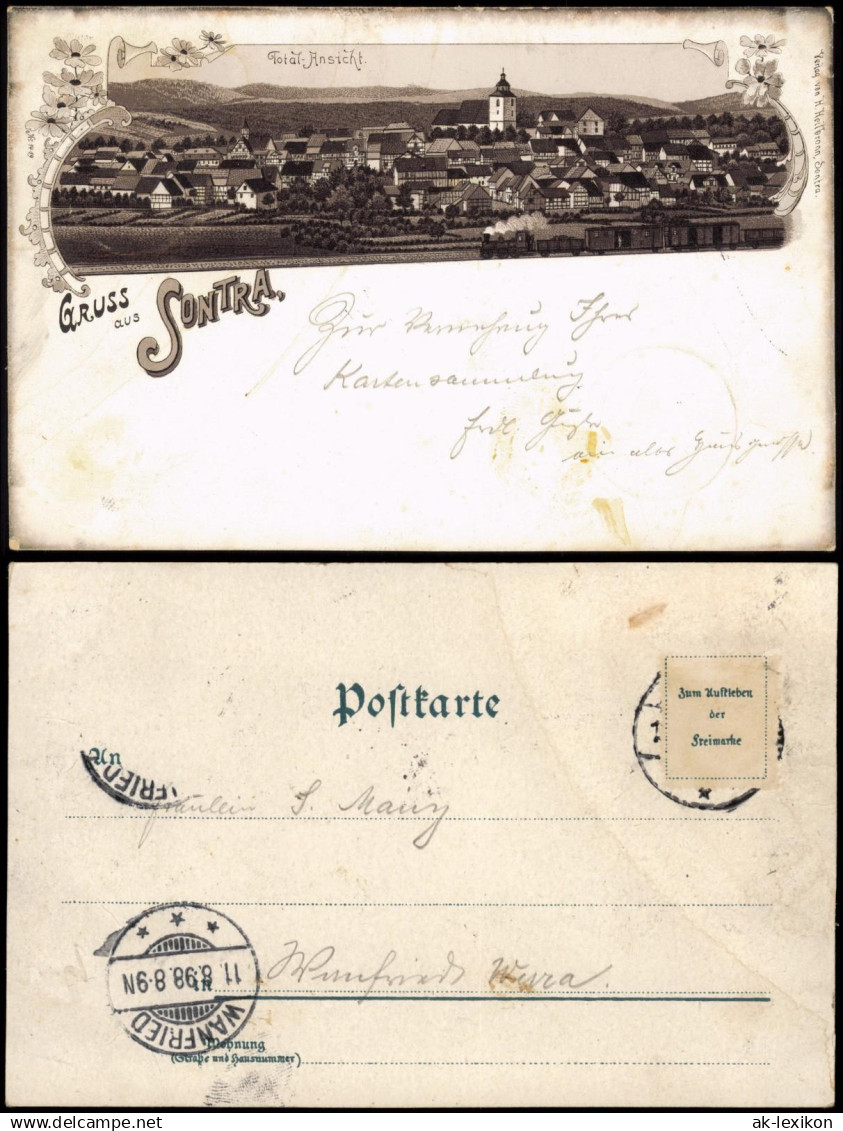 Total-Ansicht.
Verlag von H. Heilbrunn, Sontra.
GRUSS aus SONTRA,
Zur Vermehrung Ihrer
Kartensammlung
frdl. Grüße
Postkarte
Zum Aufkleben
der
Freimarke
An
FRIED
Fräulein S.
11.8.98.8-9N
in Wanfried Werra.
WANFRIED
Wohnung
(Straße und Hausnummer)
www.ak-ansichtskarten.de
ak-lexikon